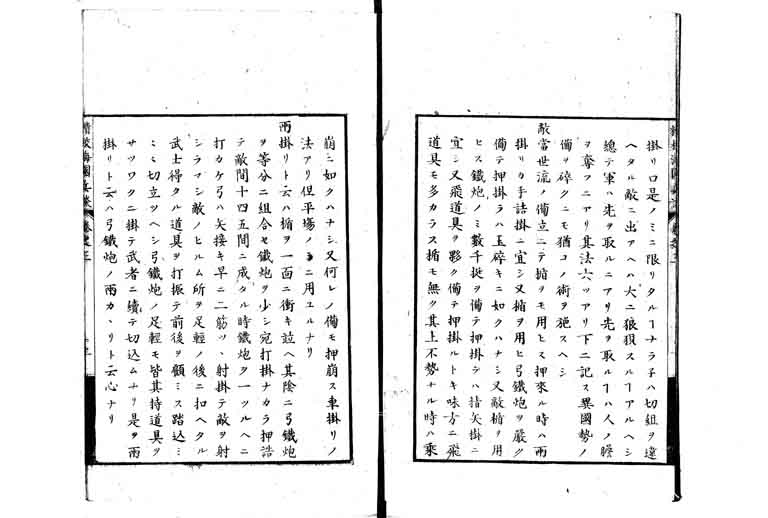 掛リ口是ノミニ限リタルヿナラ子ハ切組ヲ違
ヘタル敵ニ出アヘハ大ニ狼狽スルヿアルヘシ
總テ軍ハ先ヲ取ルニアリ先ヲ取ルヿハ人ノ膽
ヲ奪フニアリ其法六ツアリ下ニ記ス異國勢ノ
備ヲ碎クニモ猶コノ術ヲ施スヘシ
敵當世流ノ備立ニテ楯ヲモ用ヒス押來ル時ハ雨
掛リカ手詰掛ニ宜シ又楯ヲ用ヒ弓鐵炮ヲ嚴ク
備テ押掛ラハ玉碎キニ如クハナシ又敵楯ヲ用
ヒス鐵炮ノミ數千挺ヲ備テ押掛テハ指矢掛ニ
宜シ又飛道具ヲ夥ク備テ押掛ルトキ味方ニ飛
道具モ多カラス楯モ無ク其上不勢ナル時ハ乘
崩ニ如クハナシ又何レノ備モ押崩ス車掛リノ
法アリ但平場ノミニ用ユルナリ
雨掛リト云ハ楯ヲ一面ニ衝キ竝ヘ其陰ニ弓鐵炮
ヲ等分ニ組合セ鐵炮ヲ少シ宛打掛ナカラ押詰
テ敵間十四五間ニ成タル時鐵炮ヲ一ツルヘニ
打カケ弓ハ矢接キ早ニ二筋ツヽ射掛テ敵ヲ射
シラマシ敵ノヒルム所ヲ足輕ノ後ニ扣ヘタル
武士得タル道具ヲ打振テ前後ヲ顧ミス踏込ミ
ミミ切立ツヘシ弓鐵炮ノ足輕モ皆其持道具ヲ
サツワクニ掛テ武者ニ續テ切込ムナリ是ヲ雨
掛リト云ハ弓鐵炮ノ雨カヽリト云心ナリ